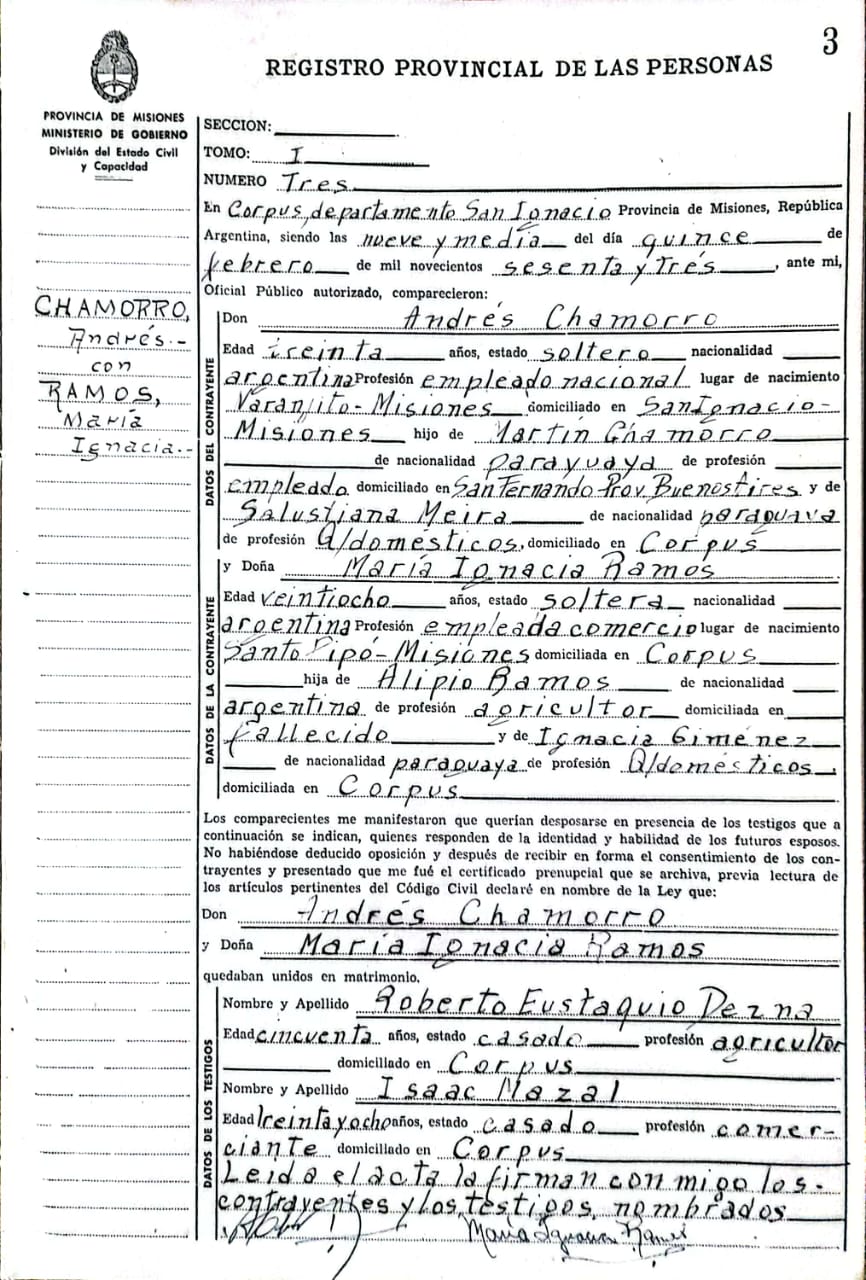 3
REGISTRO PROVINCIAL DE LAS PERSONAS
PROVINCIA DE MISIONES
MINISTERIO DE GOBIERNO
División del Estado Civil
y Capacidad
CHAMORRO,
Andrés.-
con
RAMOS,
María
Ignacia.-
SECCION:
TOMO: I
NUMERO Tres
En Corpus, departamento San Ignacio Provincia de Misiones, República
Argentina, siendo las nueve y media del día quince de
febrero de mil novecientos sesenta y tres, ante mi,
Oficial Público autorizado, comparecieron:
DATOS DEL CONTRAYENTE
Don Andrés Chamorro
Edad treinta años, estado soltero nacionalidad
argentina Profesión empleado nacional lugar de nacimiento
Naranjito-Misiones domiciliado en San Ignacio-
Misiones hijo de Martín Chamorro
de nacionalidad paraguaya de profesión
empleado domiciliado en San Fernando Prov. Buenos Aires y de
Salustiana Meira de nacionalidad paraguaya
de profesión Q/domésticos, domiciliado en Corpus
DATOS DE LA CONTRAYENTE
y Doña María Ignacia Ramos
Edad veintiocho años, estado soltera nacionalidad
argentina Profesión empleada comercio lugar de nacimiento
Santo Pipó-Misiones domiciliada en Corpus
hija de Alipio Ramos de nacionalidad
argentina de profesión agricultor domiciliada en
fallecido y de Ignacia Giménez
de nacionalidad paraguaya de profesión Q/domésticos,
domiciliada en Corpus
Los comparecientes me manifestaron que querían desposarse en presencia de los testigos que a
continuación se indican, quienes responden de la identidad y habilidad de los futuros esposos.
No habiéndose deducido oposición y después de recibir en forma el consentimiento de los con-
trayentes y presentado que me fué el certificado prenupcial que se archiva, previa lectura de
los artículos pertinentes del Código Civil declaré en nombre de la Ley que:
Don Andrés Chamorro
y Doña María Ignacia Ramos
quedaban unidos en matrimonio.
DATOS DE LOS TESTIGOS
Nombre y Apellido Roberto Eustaquio
Edad cincuenta años, estado casado profesión agricultor
domiciliado en Corpus
Nombre y Apellido Isaac Mazal
Edad treinta y ocho años, estado casado profesión comer-
ciante domiciliado en Corpus
Leida el acta la firman con migo los-
contrayentes y los testigos nombrados
María Ignacia Ramos